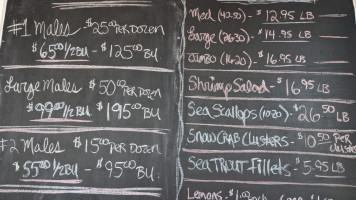 #1 Males $25.00 Per Dozen
$65.00 1/2 BU - $125.00 BU
Large Males $50.00 Per Dozen
$99.00 1/2 BU $195.00 BU
#2 Males $15.00 Per Dozen
$55.00 1/2 BU - $95.00 BU
Med - $12.95 LB
Large - $14.95 LB
Jumbo - $16.95 LB
Shrimp Salad - $16.95 LB
Sea Scallops (10/20) - $26.50 LB
Snow Crab Clusters - $10.50 Per Cluster
Sea Trout Fillets - $5.95 LB
Lemons -